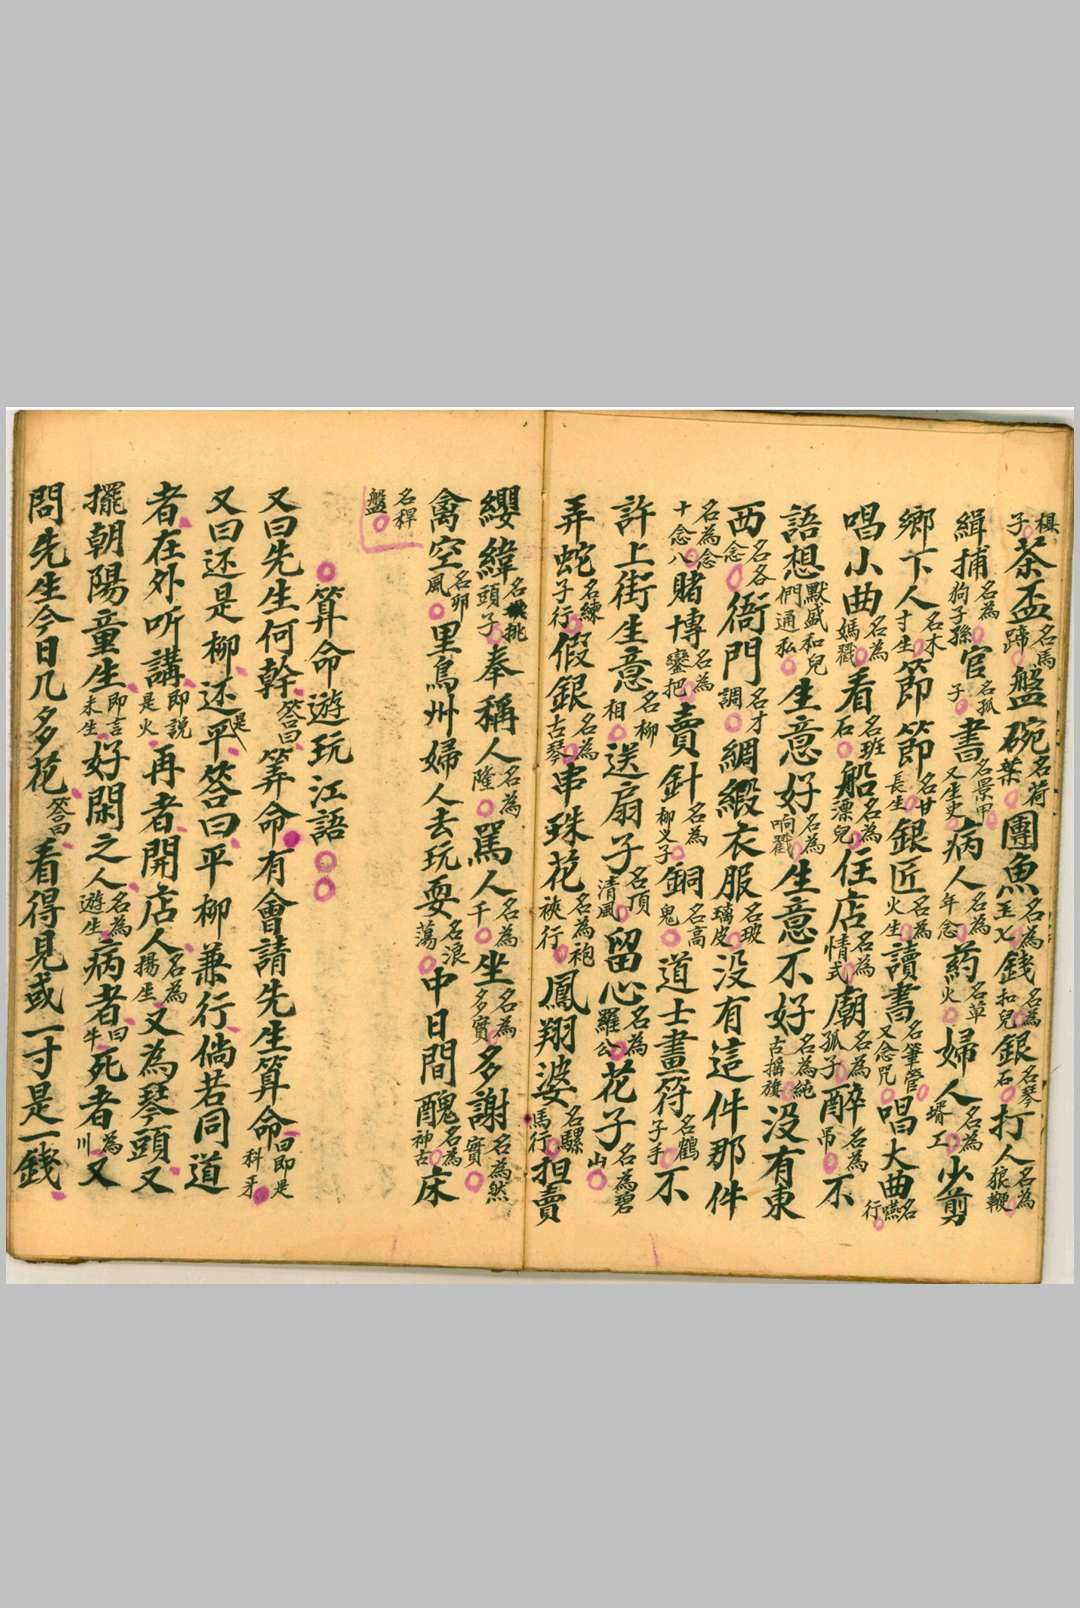 棋子茶盃名馬蹄盤碗名荷葉團魚名為王七錢名為扣兒銀名琴石打人名為狼鞭
緝捕名為狗子孫官名孤子書名景甲又座史病人名為年念药名草火婦人名為壻工少剪
鄉下人名木寸生節節名甘長生銀匠名為火生讀書名筆管又念咒唱大曲名嚥行
唱小曲名為媽戳看名班石船名為漂兒住店名為情式廟名為孤子醉名為吊不
語想默盛和兒們通私生意好名為响戳生意不好名為純古搖旗没有東
西名各念衙門名才調綢緞衣服名玻璃皮没有這件那件
名為念十念八賭博名為鑾把賣針名為柳义子銅名高鬼道士畫符名鶴子手不
許上街生意名柳相送扇子名頂清風留心名為羅公花子名為碧山
弄蛇名練子行假銀名為古琴串珠花名為袍裌行鳳翔婆名騾馬行担賣
纓緯名挑頭子奉稱人名為隆罵人名為千坐名為多實多謝名為然實
禽空名卯風里鳥州婦人去玩耍名浪蕩中日間醜名為神古床
名稈盤
算命遊玩江語
又曰先生何幹答曰算命有會請先生算命曰即是科矛
又曰还是柳还是平答曰平柳兼行倘若同道
者在外听講即説是火再者開店人名為揚生又為琴頭又
擺朝陽童生即言未生好閑之人名為遊生病者曰牛死者為川又
問先生今日几多花答曰看得見或一寸是一錢